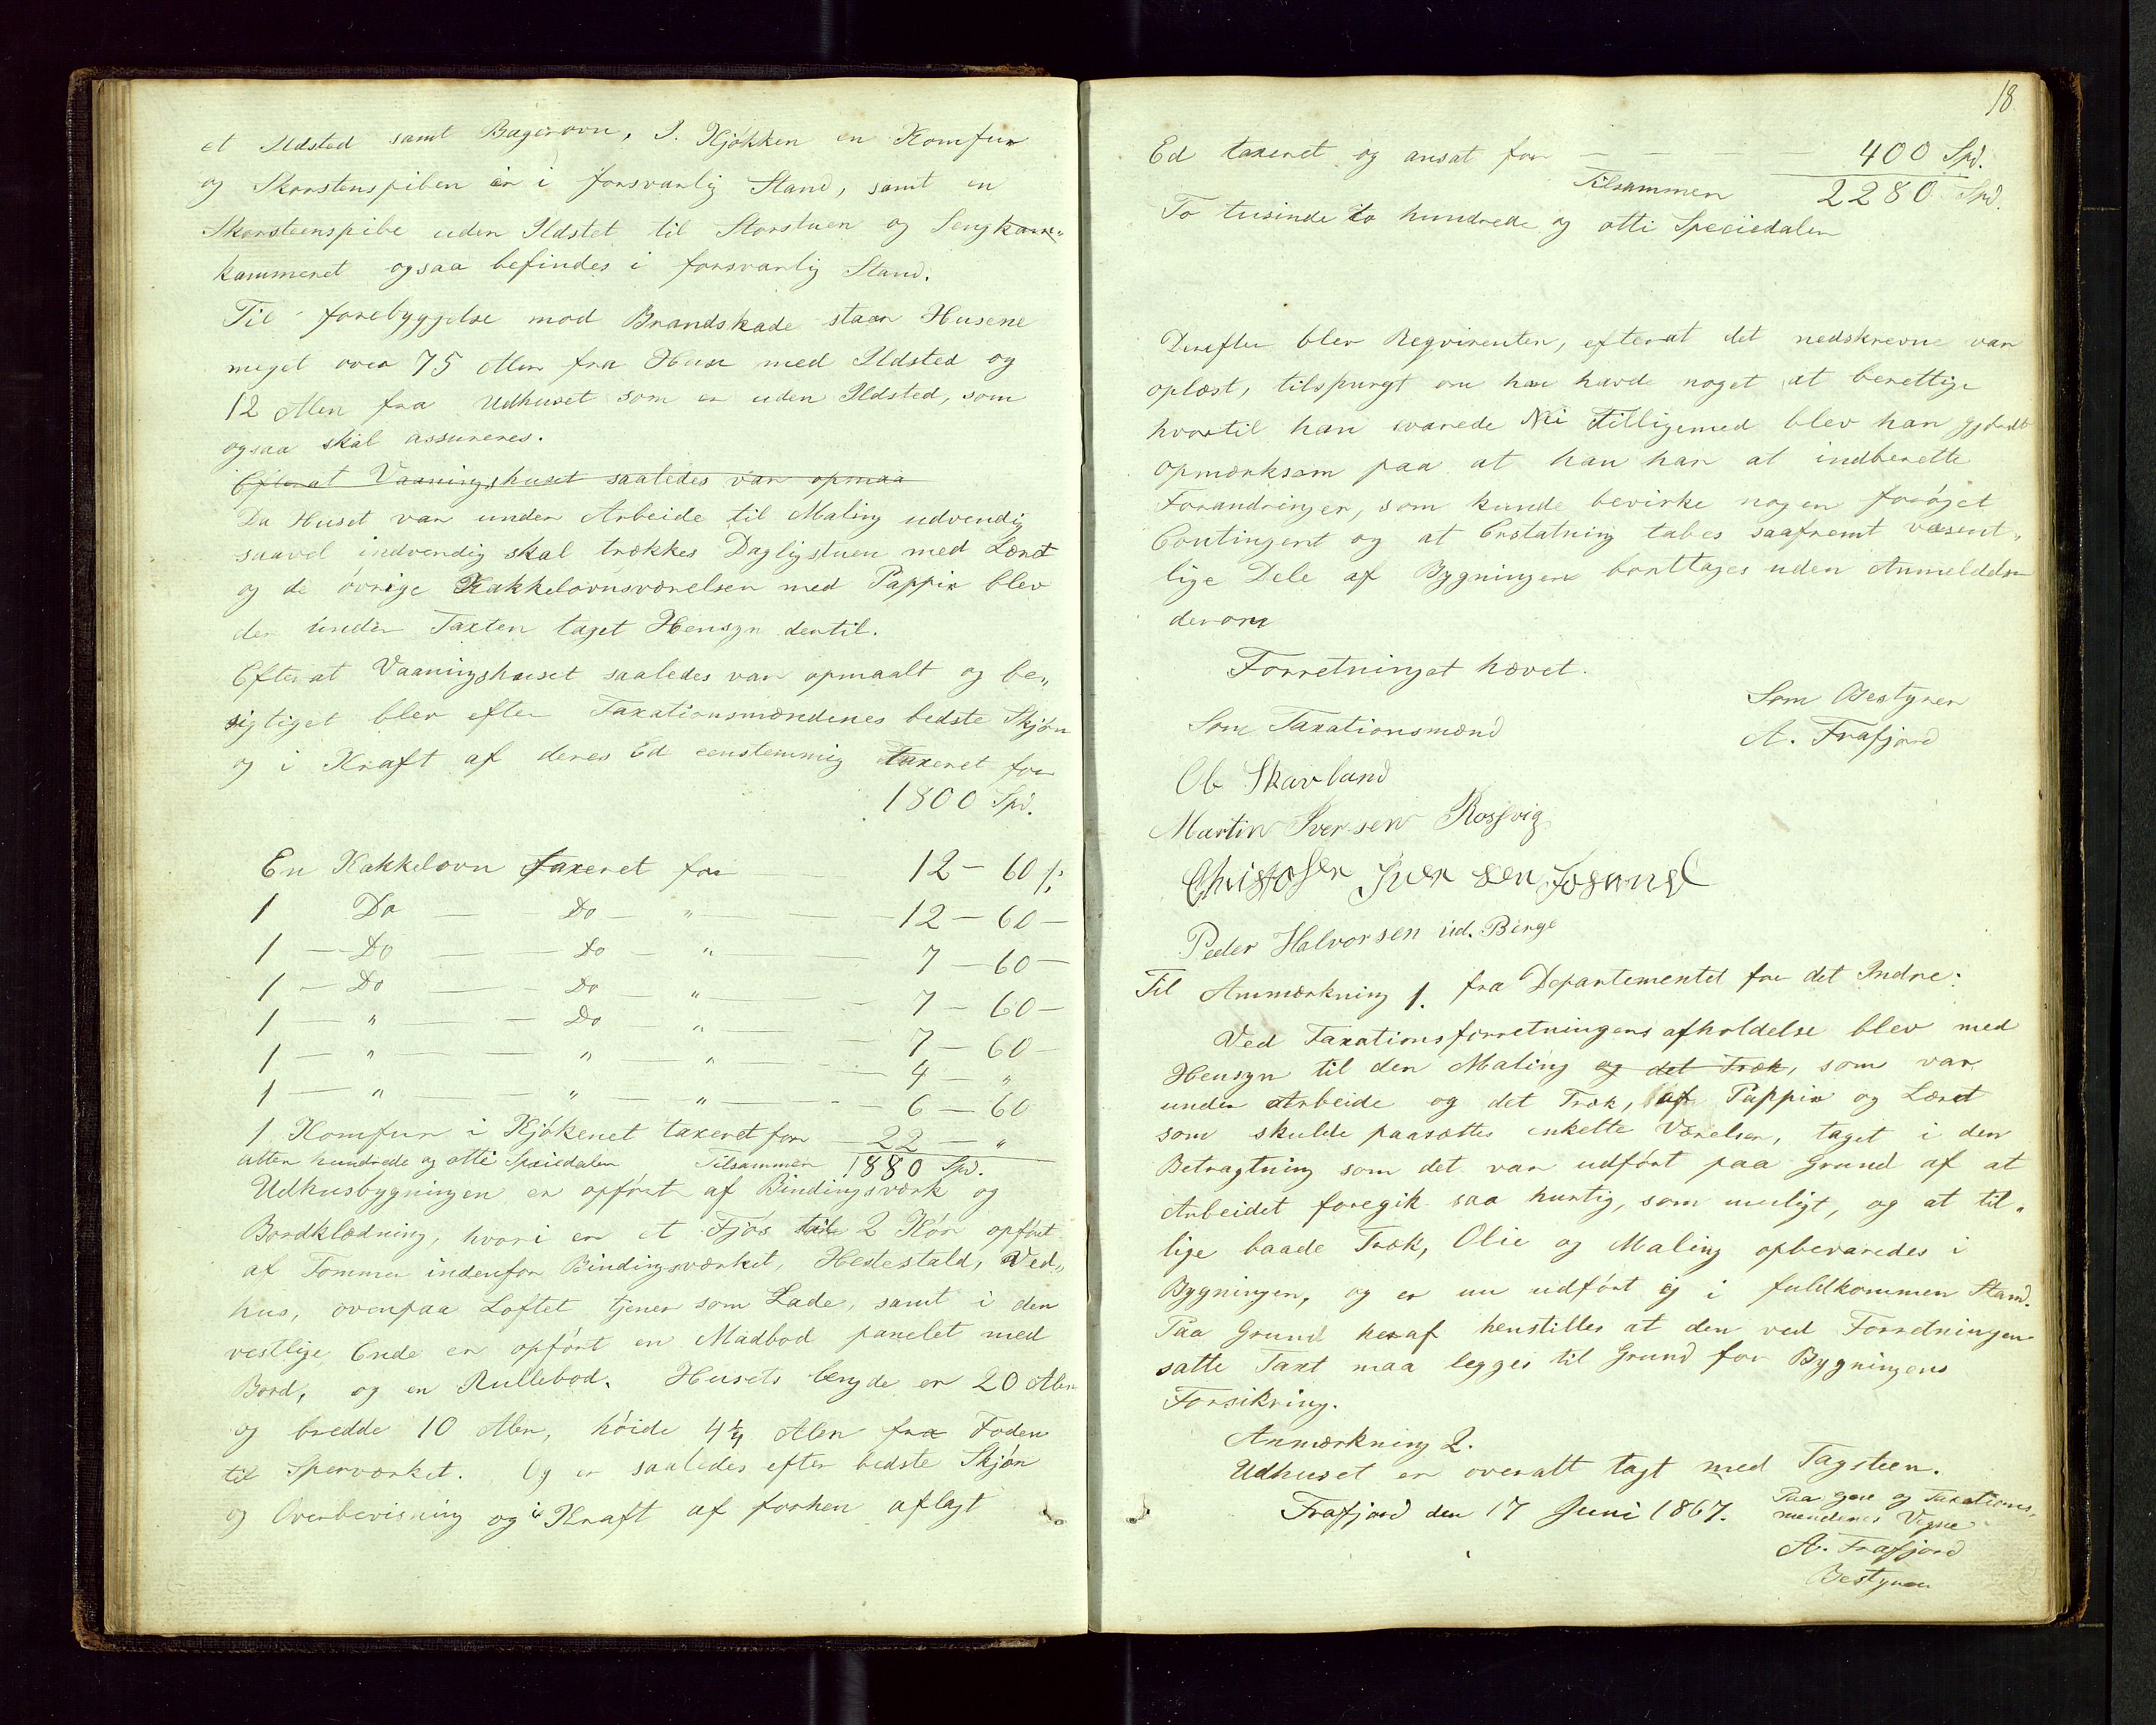 et Ildsted samt Bagerovn, I. Kjøkken en Komfur
og Skorstenspiben er i forsvarlig Stand, samt en
Skorsteenspibe uden Ildstet til Storstuen og Sengkam„
kammeret ogsaa befindes i forsvarlig Stand.
Til forebyggelse mod Brandskade staar Husene
meget over 75 Alen fra Huse med Ildsted og
12 Alen fra Udhuset som er uden Ildsted, som
ogsaa skal assureres.
Efterat Vaaningshuset saaledes var opmaa
Da Huset var under Arbeide til Maling udvendig
saavel indvendig skal trækkes Dagligstuen med Læret
og de øvrige Kakkelovnsværelser med Pappir blev
der under Taxten taget Hensyn dertil.
Efterat Vaaningshuset saaledes var opmaalt og be„
sigtiget blev efter Taxationsmændenes bedste Skjøn
og i Kraft af deres Ed eenstemmig taxeret for
1800 Spd.
En Kakkelovn taxeret for — 12 – 60 ʃ:
1 Do — Do — „ — 12 – 60 –
1 – Do — Do — „ — 7 – 60 –
1 – Do — Do — „ — 7 – 60 –
1 – „ — Do — „ — 7 – 60 –
1 – „ — „ „ — 4 – „
1 – „ — „ — „ — 6 – 60
1 Komfur i Kjøkenet taxeret for – 22 – „
atten hundrede og otti Speciedaler Tilsammen 1880 Spd.
Udhusbygningen er opført af Bindingsværk og
Bordklædning, hvori er et Fjøs til 2 Kør opført
af Tømmer indenfor Bindingsværket, Hestestald, Ved„
hus, ovenpaa Loftet tjener som Lade, samt i den
vestlige Ende er opført en Madbod panelet med
Bord, og en Rullebod. Husets lengde er 20 Alen
og bredde 10 Alen, høide 4¼ Alen fra Foden
til Sperværket. Og er saaledes efter bedste Skjøn
og Overbevisning og i Kraft af forhen aflagt
18
Ed taxeret og ansat for — — — — 400 Spd.
Tilsammen 2280 Spd.
To tusinde to hundrede og otti Speciedaler
Derefter blev Reqvirenten, efterat det nedskrevne var
oplæst, tilspurgt om han havde noget at berettige
hvortil han svarede Nei Tilligemed blev han gjordt
opmærksom paa at han har at indberette
Forandringer, som kunde bevirke nogen forøget
Contingent og at Erstatning tabes saafremt væsent„
lige Dele af Bygningen borttages uden Anmeldelse
derom
Forretninget hævet.
Som Bestyrer
Som Taxationsmænd
A. Frafjord
Ole Skavland
Martin Iversen Rossvig
Christofer Iversen
Peder Halvorsen ud. Berge
Til Anmærkning 1. fra Departementet for det Indre:
Ved Taxationsforretningens afholdelse blev med
Hensyn til den Maling og det Træk, som var
under Arbeide og det Træk, af Pappir og Læret
som skulde paasættes enkette Værelser, taget i den
Betragtning som det var udført paa Grund af at
Arbeidet foregik saa hurtig, som muligt, og at til„
lige baade Træk, Olie og Maling opbevaredes i
Bygningen, og er nu udført og i fuldkommen Stand.
Paa Grund heraf henstilles at den ved Forretningen
satte Taxt maa legges til Grund for Bygningens
Forsikring.
Anmærkning 2.
Udhuset er overalt tagt med Tagsteen.
Frafjord den 17 Juni 1867.
Paa egne og Taxations„
mendenes Vegne
A. Frafjord
Bestyrer